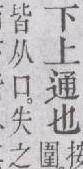 下上通也
圍
皆从口。失之